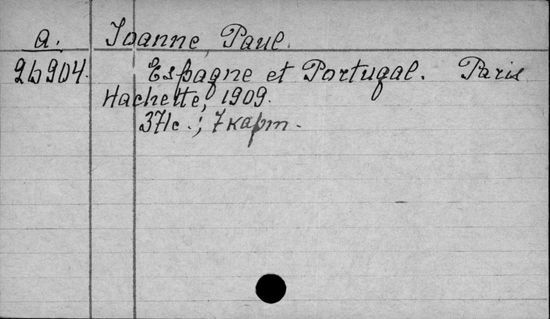 a. Joanne, Paul.
26904. Espagne et Portugal. Paris
Hachette, 1909.
371c.; 7 карт.